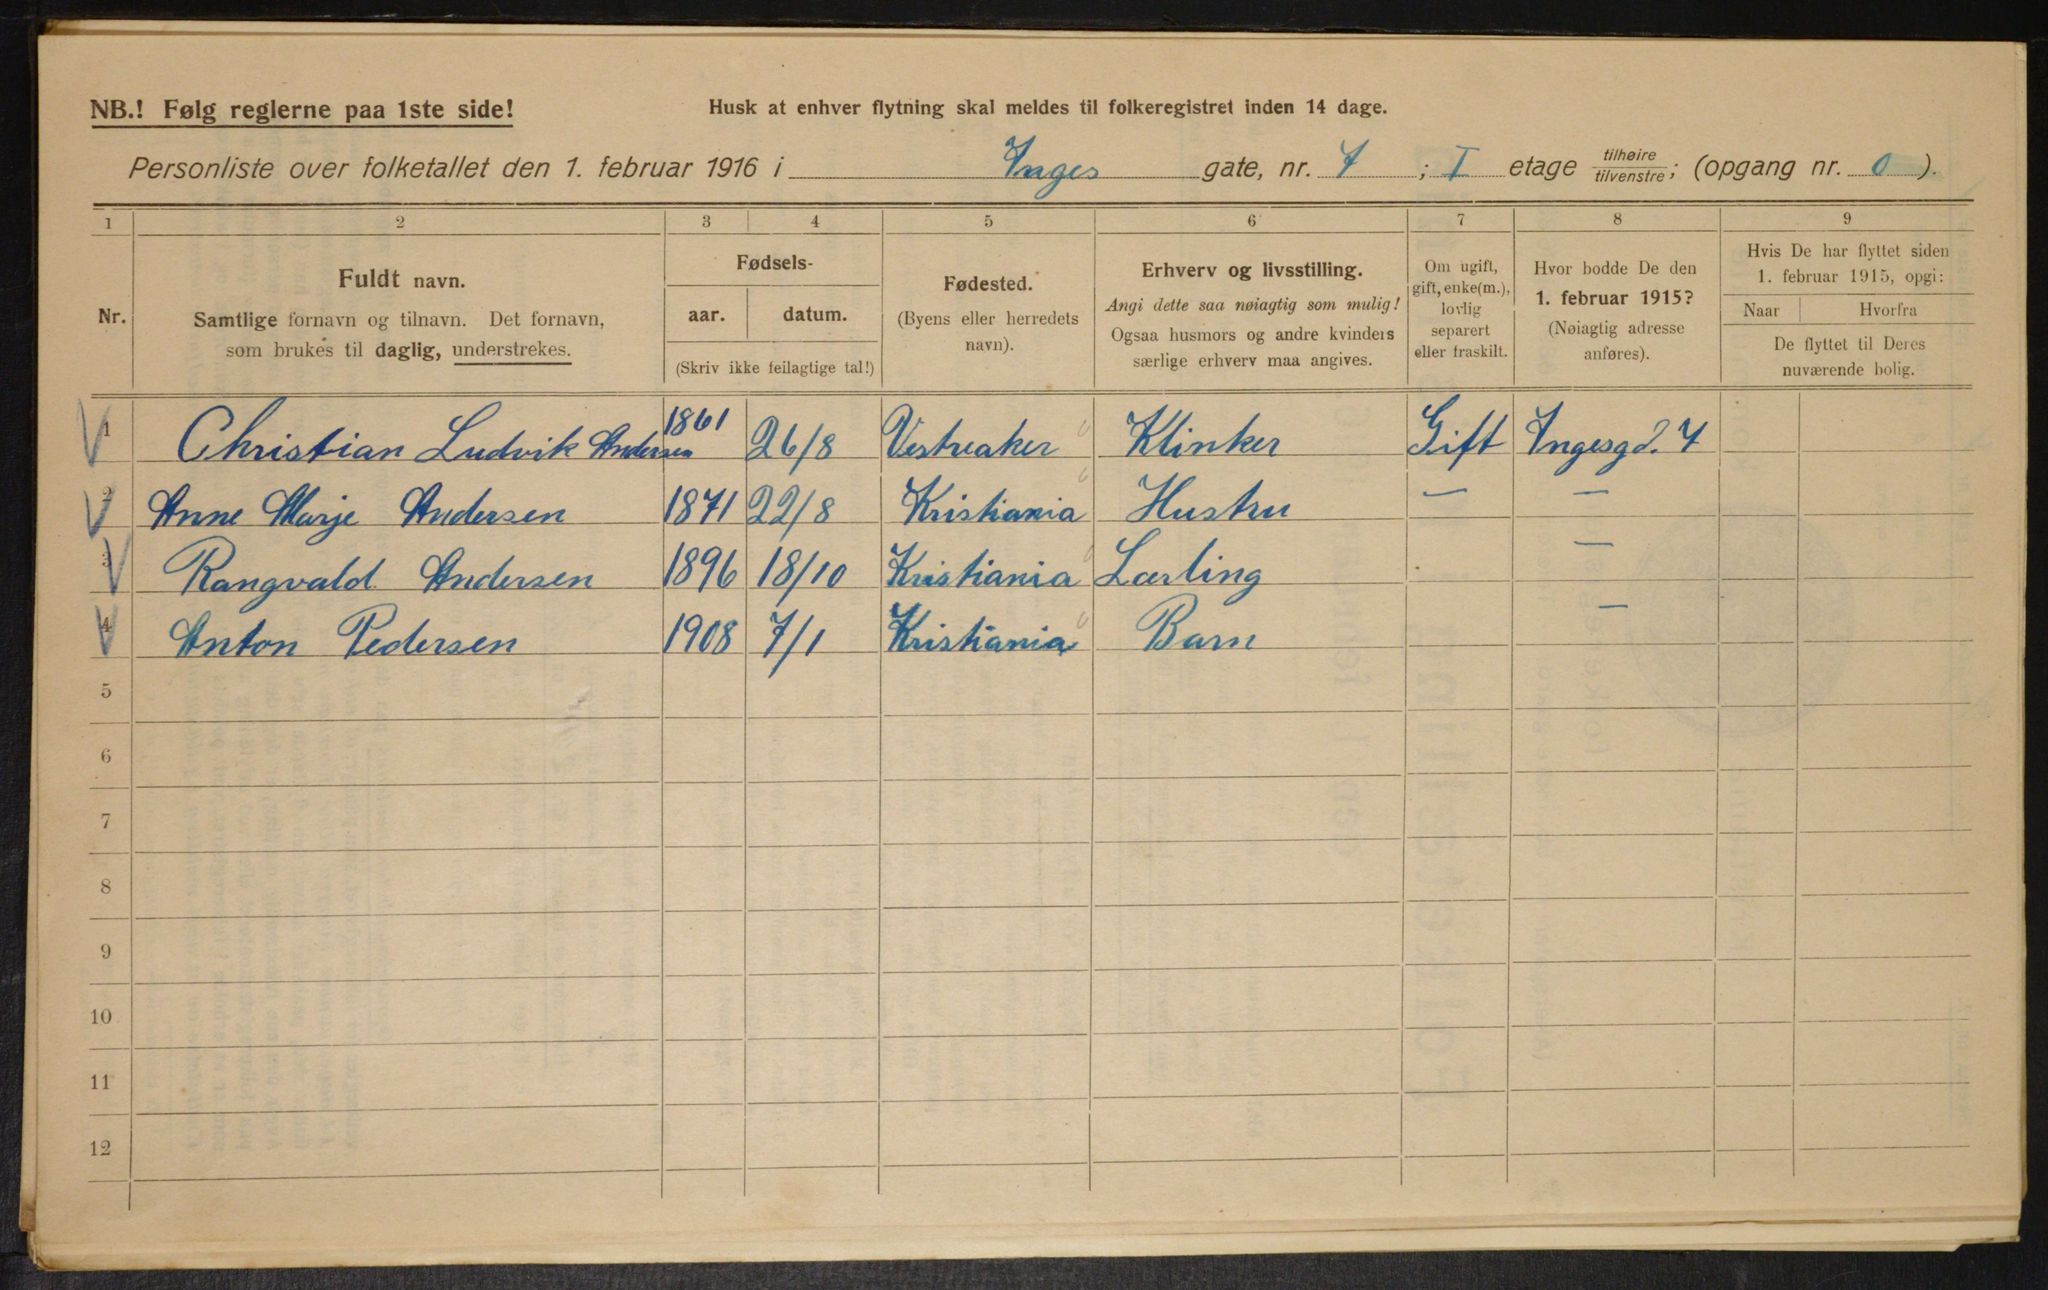 NB.! Følg reglerne paa 1ste side! Husk at enhver flytning skal meldes til folkeregistret inden 14 dage.
Personliste over folketallet den 1. februar 1916 i Inges gate, nr. 7 ; I etage tilhøire tilvenstre ; (opgang nr. 0 ).
1 2 3 4 5 6 7 8 9
Nr.
Fuldt navn.
Samtlige fornavn og tilnavn. Det fornavn,
som brukes til daglig, understrekes.
Fødsels-
aar. datum.
(Skriv ikke feilagtige tal!)
Fødested.
(Byens eller herredets
navn).
Erhverv og livsstilling.
Angi dette saa nøiagtig som mulig!
Ogsaa husmors og andre kvinders
særlige erhverv maa angives.
Om ugift,
gift, enke(m.),
lovlig
separert
eller fraskilt.
Hvor bodde De den
1. februar 1915?
(Nøiagtig adresse
anføres).
Hvis De har flyttet siden
1. februar 1915, opgi:
Naar Hvorfra
De flyttet til Deres
nuværende bolig.
1 Christian Ludvik Andersen 1861 26/8 Vestreaker Klinker Gift Ingesgd. 7
2 Anne Marje Andersen 1871 22/8 Kristiania Hustru — —
3 Rangvald Andersen 1896 18/10 Kristiania Lærling —
4 Anton Pedersen 1908 7/1 Kristiania Barn —
5
6
7
8
9
10
11
12